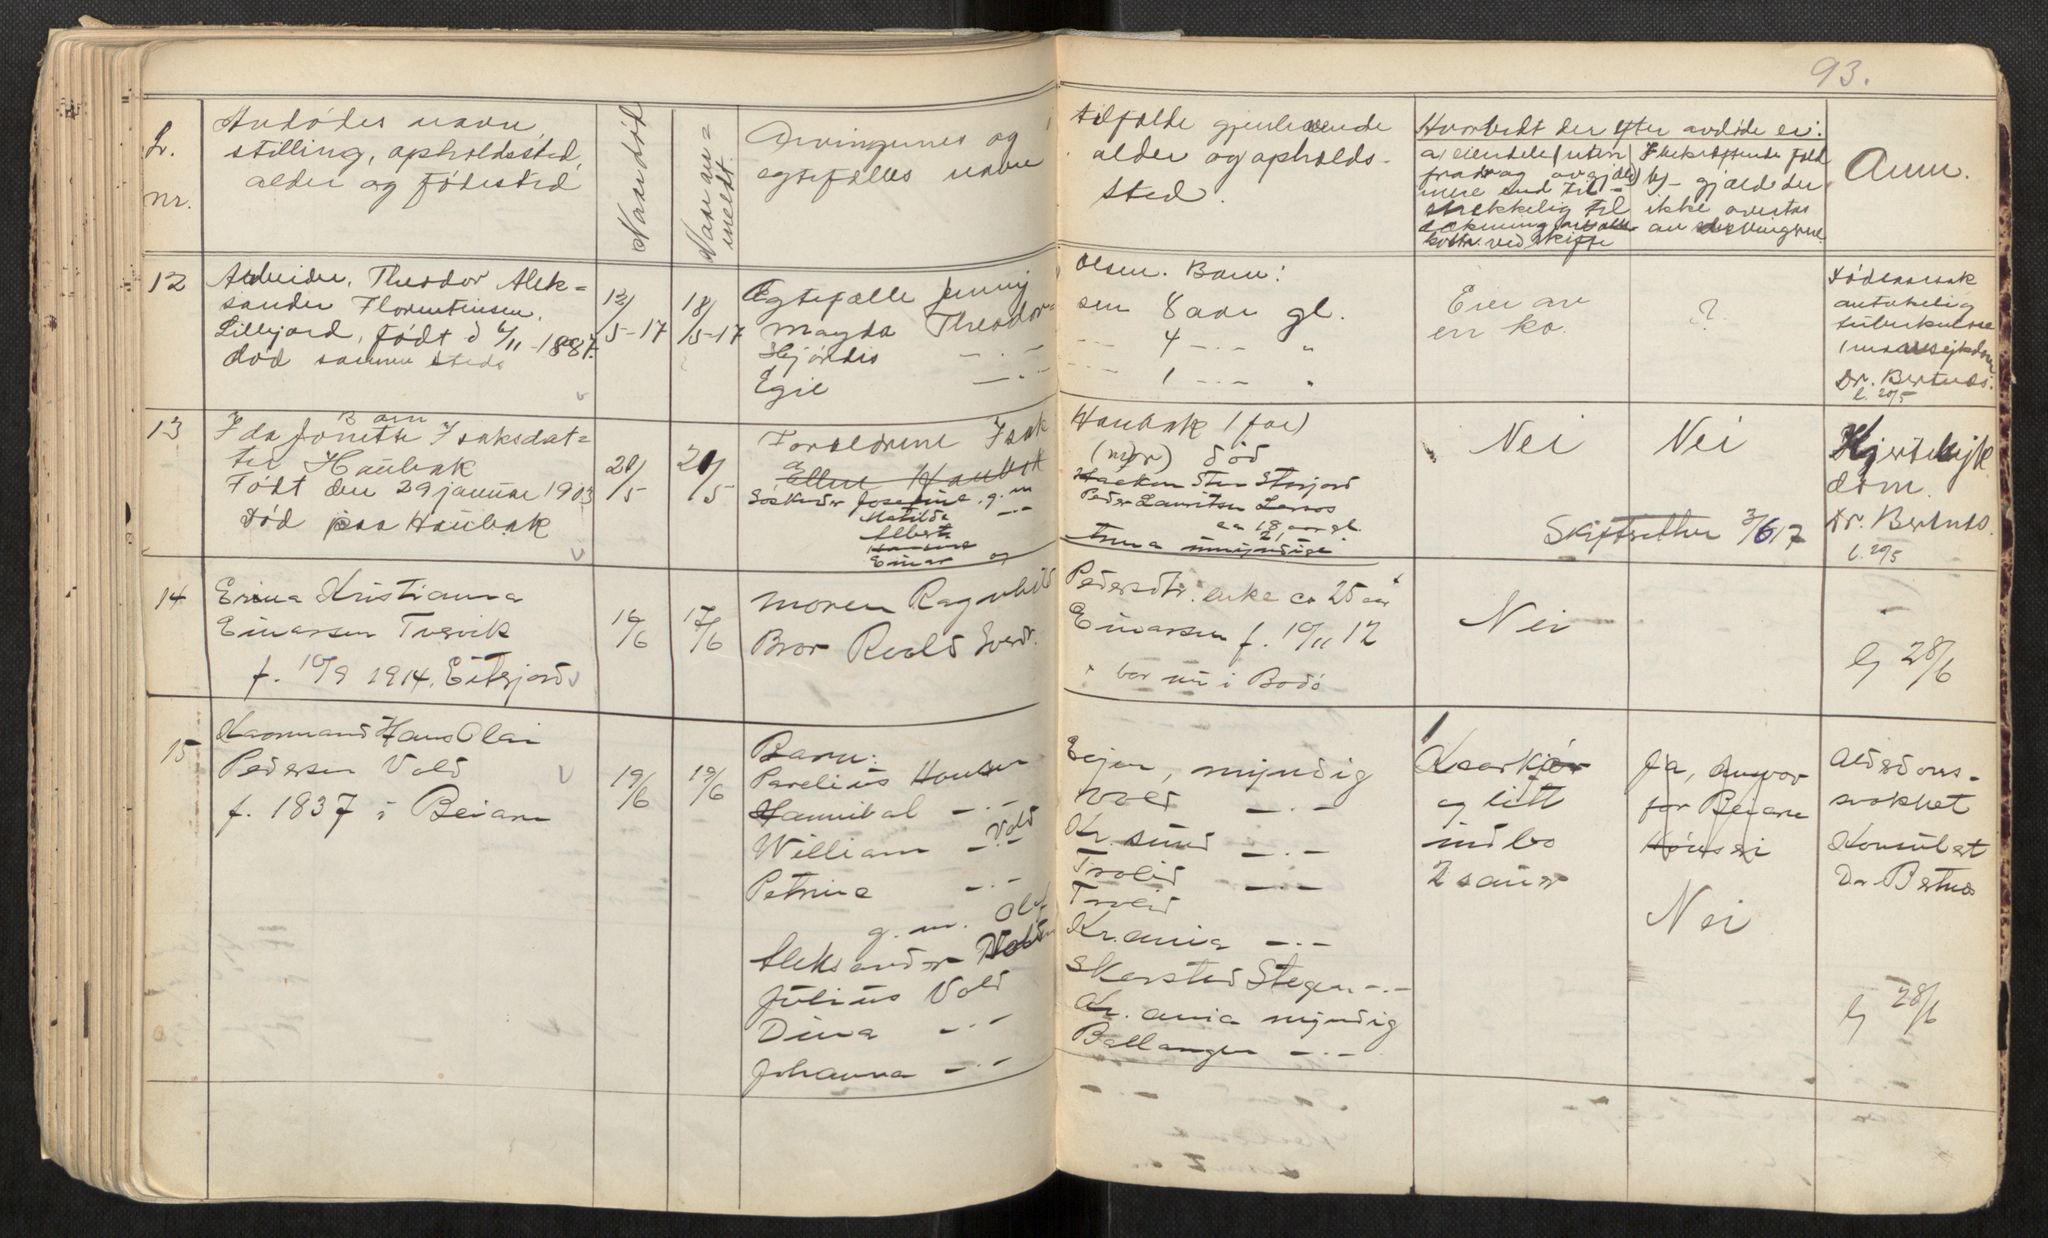 93.
Lr.
nr.
Avdødes navn,
stilling, opholdssted,
alder og fødested
Naar død
Naar an=
meldt.
Arvingernes og
egtefælles navn
tilfælde gjenlevende
alder og opholds-
sted.
Hvorvidt der efter avdøde er:
a, eiendele (uten
fradrag av gjæld)
mere end til-
strækkelig til
dækning
ved skifte
I bekræftende fald
b) - gjæld der
ikke overtas
av arvingerne
Anm.
12
Arbeider, Theodor Alek=
sander Florentinsen,
Lillejord, født d 6/11 1887.
død samme steds
12/
5-17
18/
5-17
Egtefælle Jenny
Magda Theodor=
Hjørdis -.-
Egil -.-
Olsen. Barn:
sen 8 aar gl.
--- 4 -.- "
--- 1 -.- "
Eier av
en ko.
?
Dødsaarsak
antakelig
tuberkuløse
Dr. Bertnæs.
l. 20/5
13
Barn
Ida Jonette Isaksdat=
ter Haubak
Født den 29 januar 1903
Død paa Haubak
20/
5
20/
5
Forældrene Isak
Ellen Haubak
Søskender Josefine, g.m
Matilda -.-
Albert
Einar og
Haubak (far)
(mor) død
Haakon Storjord
Peder Lauritsen
ca 18 aar gl.
21
umyndige
Nei
Nei
Skifteretten 3/6 17
Hjertesyk
dom.
Dr. Bertnæs.
l. 29/5
14
Erina Kristianna
Einarsen Tvervik
f. 10/9 1914. Eitefjord
16/
6
17/
6
Moren Ragnhild
Bror Roald
Pedersdtr. enke ca 25 aar
Einarsen f. 10/11 12
bor nu i Bodø
Nei
lg 28/6
15
Kaarmand Hans Olai
Pedersen Vold
f. 1837 i Beiarn
19/
6
19/
6
Barn:
Parelius Hansen
Hannibal -.-
William Vold
Petrine -.-
g.m. Olaf
Aleksander Vold
Julius Vold
Dina -.-
Johanna -.-
Eijen, myndig
Vold -.-
Kr.sund -.-
Trolid -.-
Trolid
Kr.ania -.-
Skarstad Steigen -.-
Kr.ania myndig
Ballangen -.-
og litt
indbo
2 sauer
Ja, Ansvar
for Beiarn
Nei
Alderdoms-
svakhet
Konsulert
Dr Bertnæs
lg 28/6